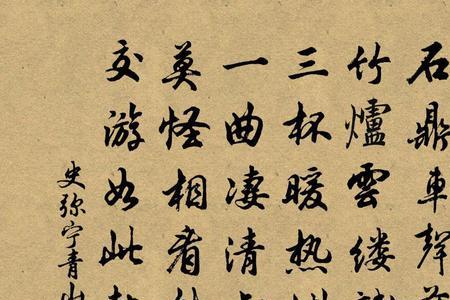 石鼎車聲
竹爐雲缕
三杯暖热
一曲凄清
莫怪相看
交游如此
史弥宁青